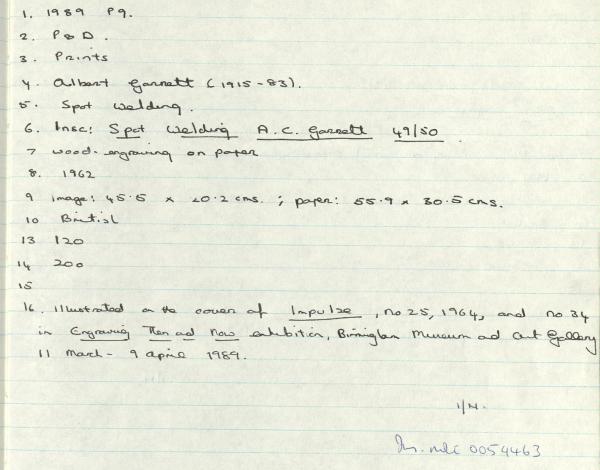 1. 1989 P9.
2. P & D.
3. Prints
4. Albert Garrett (1915-83).
5. Spot welding.
6. Insc: Spot Welding A.C. Garrett 49/50
7 wood-engraving on paper
8. 1962
9 image: 45.5 x 20.2 cms. ; paper: 55.9 x 30.5 cms.
10 British
13 120
14 200
15
16. Illustrated on the cover of Impulse, no 25, 1964, and no 34
in Engraving Then and Now exhibition, Birmingham Museum and Art Gallery
11 March - 9 April 1989.
0054463